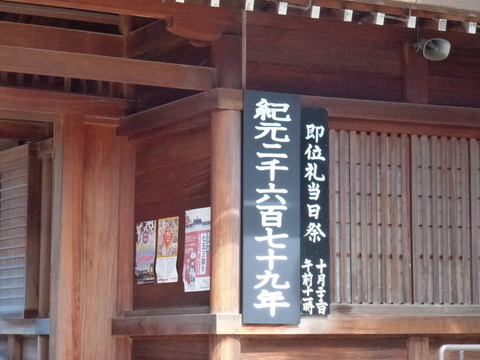 紀元二千六百七十九年
即位礼当日祭
十月二十二日
午前十一時
七五三詣り